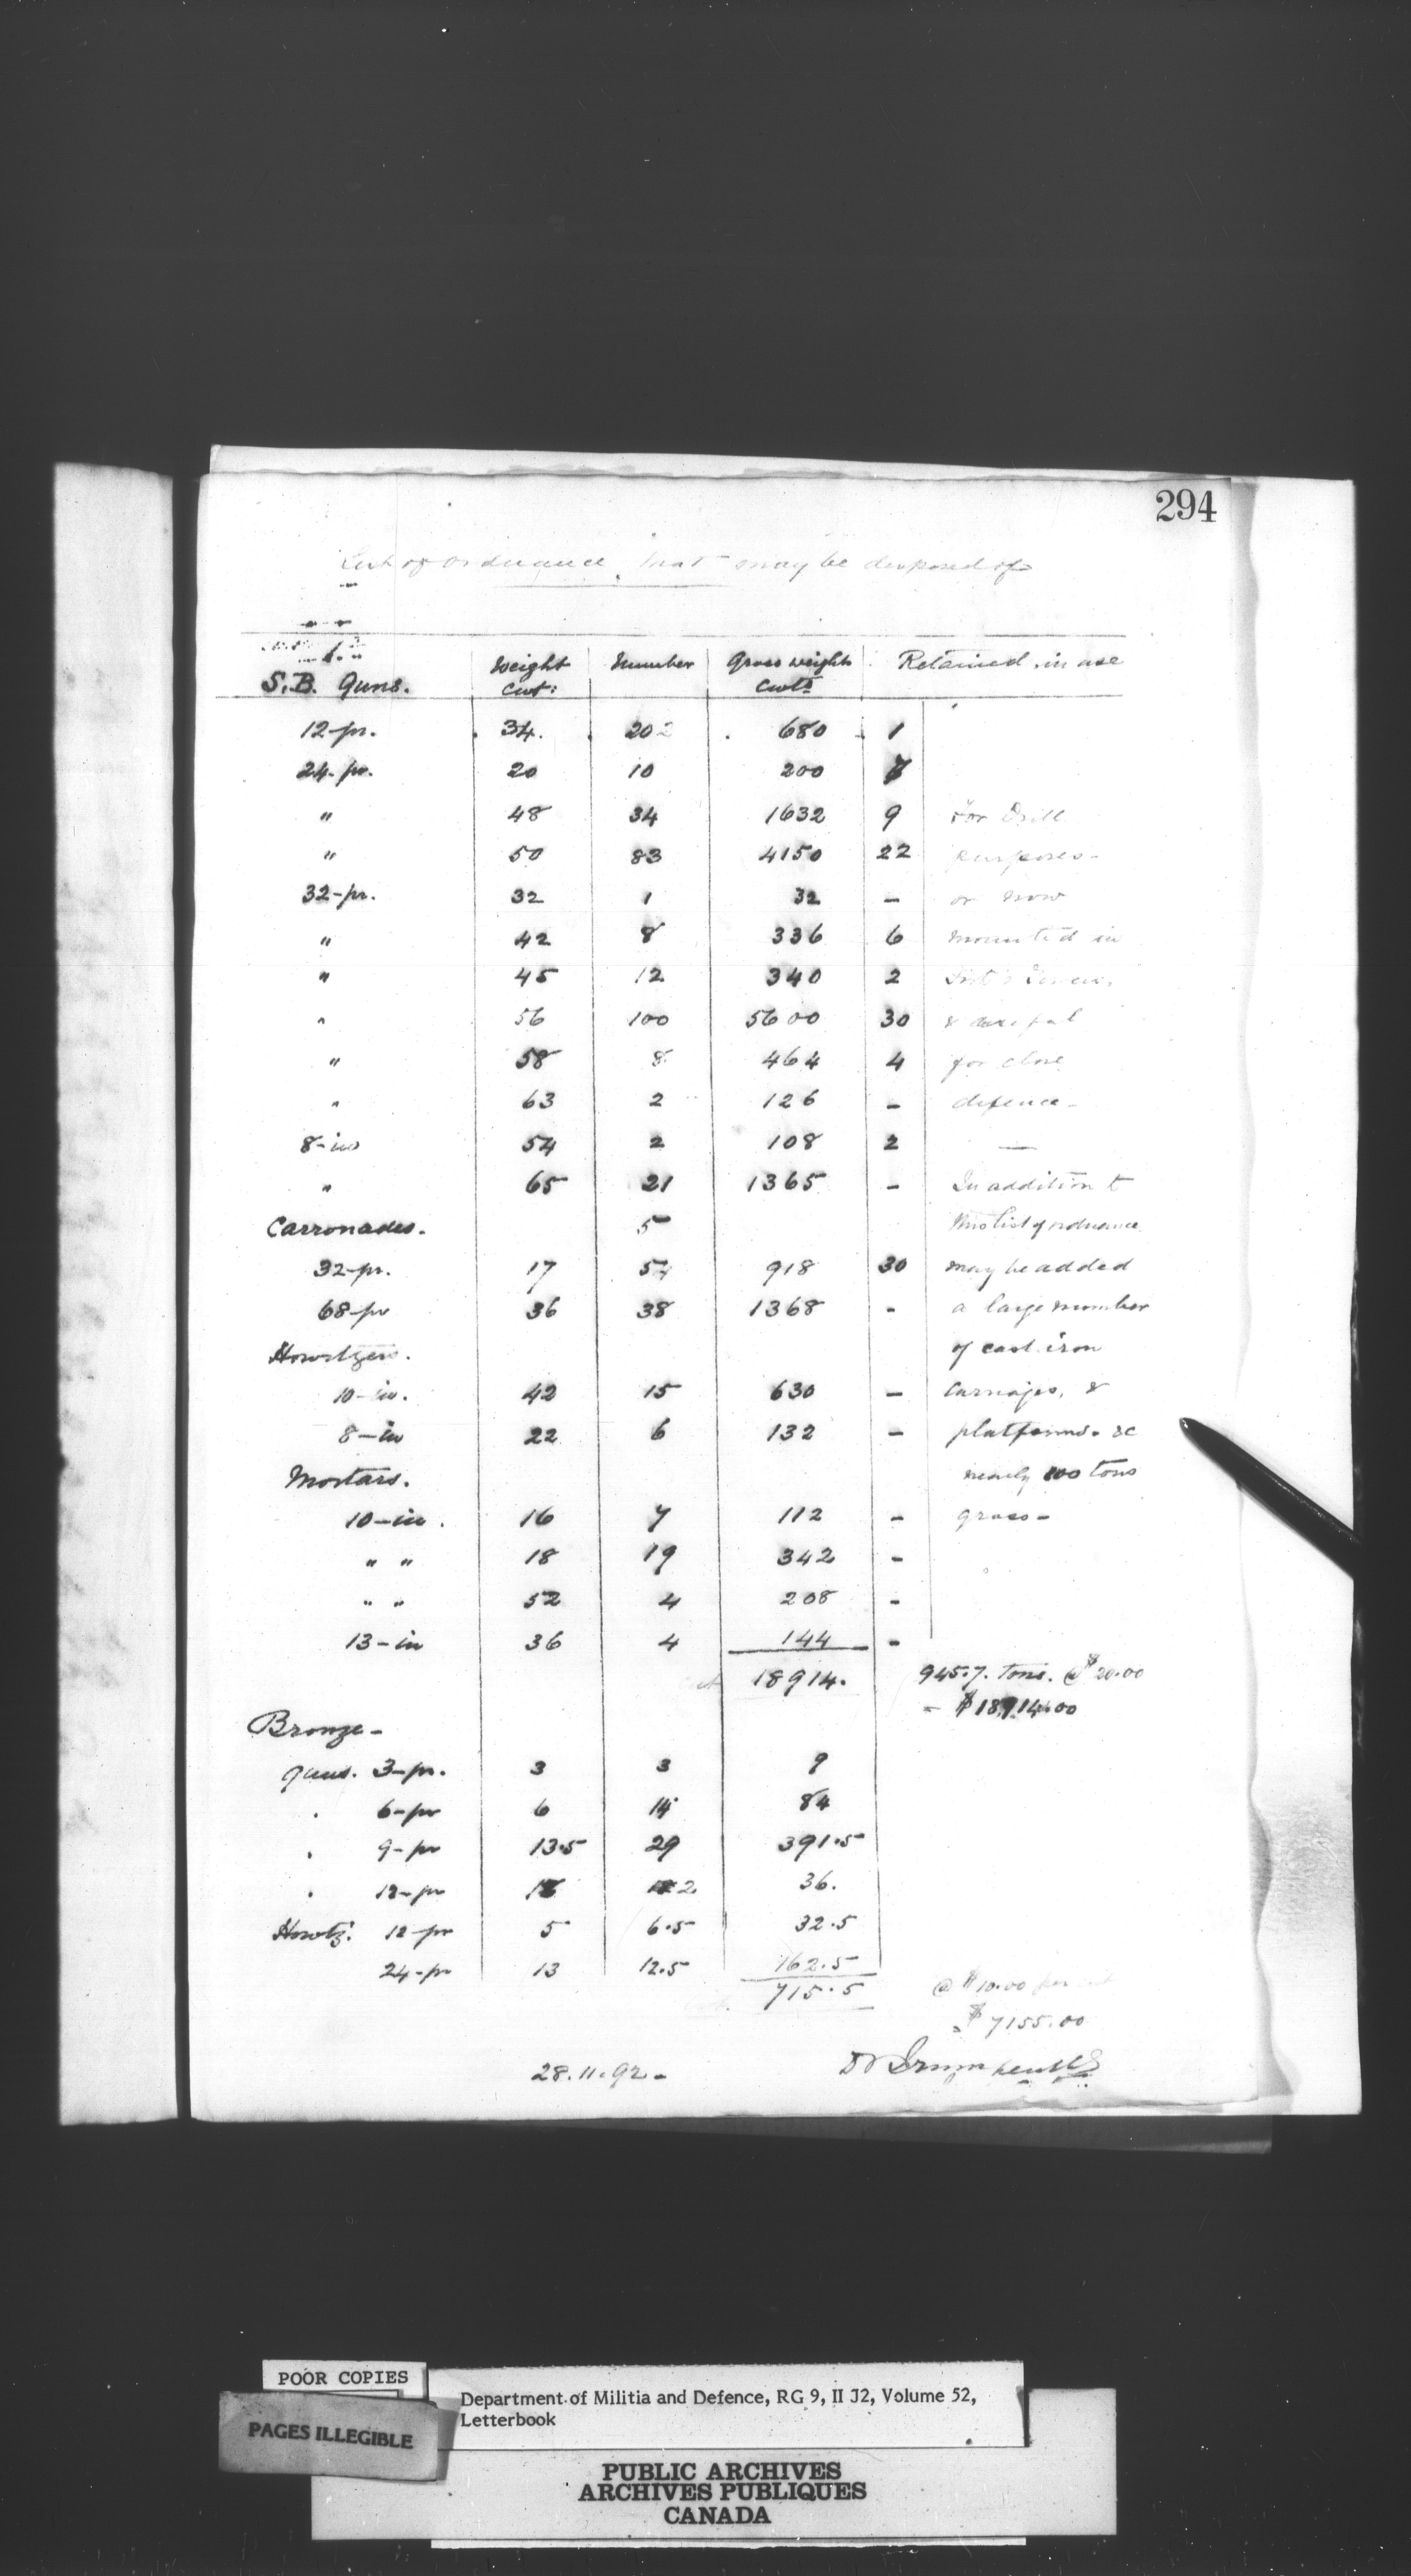 294
List of ordnance that may be disposed of
S.B. Guns. Weight Cwt: Number Gross weight Cwts Retained in use
12-pr. 34. 20 680 1
24-pr. 20 10 200
" 48 34 1632 9 For Drill
" 50 83 4150 22 purposes-
32-pr. 32 1 32 - or now
" 42 8 336 6 mounted in
" 45 12 340 2
" 56 100 5600 30 &
" 58 8 464 4 for close
" 63 2 126 - defence-
8-in 54 2 108 2 —
" 65 21 1365 - In addition to
Carronades. 5 this list of ordnance
32-pr. 17 54 918 30 may be added
68-pr 36 38 1368 - a large number
Howitzers. of cast iron
10-in. 42 15 630 - Carriages, &
8-in 22 6 132 - platforms. &c
Mortars. nearly 100 tons
10-in. 16 7 112 - gross-
" " 18 19 342 -
" " 52 4 208 -
13-in 36 4 144 -
18914. 945.7. tons. @ $20.00
- $18914.00
Bronze-
Guns. 3-pr. 3 3 9
" 6-pr 6 14 84
" 9-pr 13.5 29 391.5
" 12-pr 18 2 36.
Howtz. 12-pr 5 6.5 32.5
24-pr 13 12.5 162.5
715.5 @ $10.00 per
$7155.00
28.11.92-
POOR COPIES
PAGES ILLEGIBLE
Department of Militia and Defence, RG 9, II J2, Volume 52,
Letterbook
PUBLIC ARCHIVES
ARCHIVES PUBLIQUES
CANADA